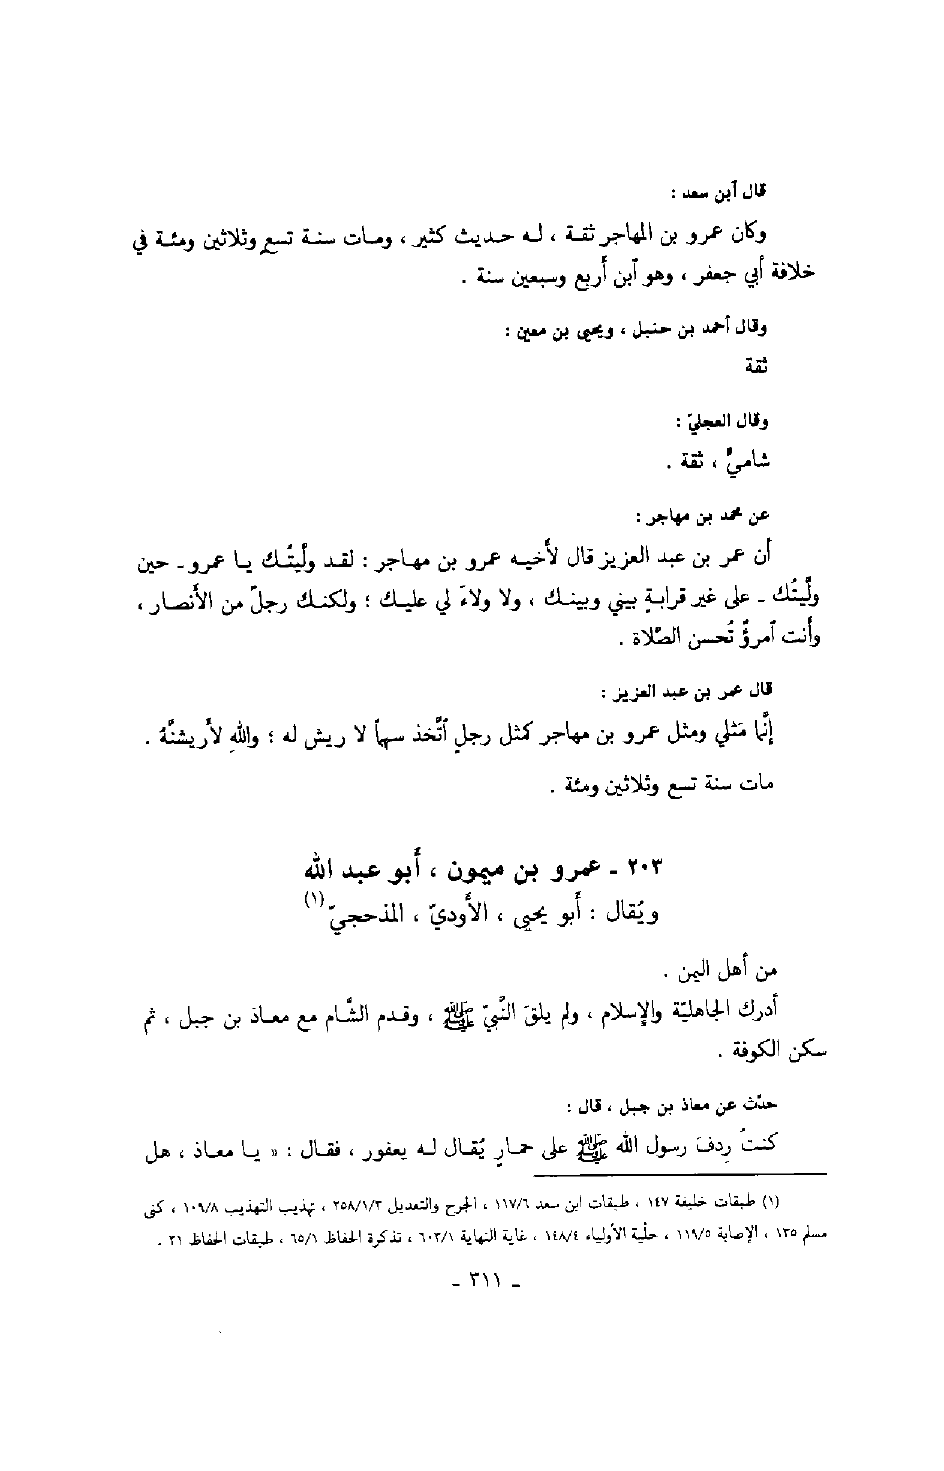 قال ٱبن سعد :
وكان عمرو بن المهاجر ثقة ، له حديث كثير ، ومات سنة تسع وثلاثين ومئة في
خلافة أبي جعفر ، وهو ٱبن أربع وسبعين سنة .
وقال أحمد بن حنبل ، ويحيى بن معين :
ثقة
وقال العجليّ :
شاميٌّ ، ثقة .
عن محمد بن مهاجر :
أن عمر بن عبد العزيز قال لأخيه عمرو بن مهاجر : لقد ولَّيتُك يا عمرو ـ حين
ولَّيتُك ـ على غير قرابةٍ بيني وبينك ، ولا ولاءَ لي عليك ؛ ولكنك رجلٌ من الأنصار ،
وأنت ٱمرؤٌ تُحسن الصَّلاة .
قال عمر بن عبد العزيز :
إنَّما مَثلي ومثل عمرو بن مهاجر كمثل رجلٍ ٱتَّخذ سهماً لا ريش له ؛ واللهِ لأريشنَّهُ .
مات سنة تسع وثلاثين ومئة .
٢٠٣ ـ عمرو بن ميمون ، أبو عبد الله
ويُقال : أبو يحيى ، الأوديّ ، المذحجيّ (١)
من أهل اليمن .
أدرك الجاهليّة والإسلام ، ولم يلقَ النَّبيّ ﷺ ، وقدم الشَّام مع معاذ بن جبل ، ثم
سكن الكوفة .
حدّث عن معاذ بن جبل ، قال :
كنتُ رِدفَ رسول الله ﷺ على حمارٍ يُقال له يعفور ، فقال : « يا معاذ ، هل
(١) طبقات خليفة ١٤٧ ، طبقات ابن سعد ١١٧/٦ ، الجرح والتعديل ٢٥٨/١/٣ ، تهذيب التهذيب ١٠٩/٨ ، كنى
مسلم ١٣٥ ، الإصابة ١١٩/٥ ، حلية الأولياء ١٤٨/٤ ، غاية النهاية ٦٠٣/١ ، تذكرة الحفاظ ٦٥/١ ، طبقات الحفاظ ٢١ .
ـ ٣١١ ـ